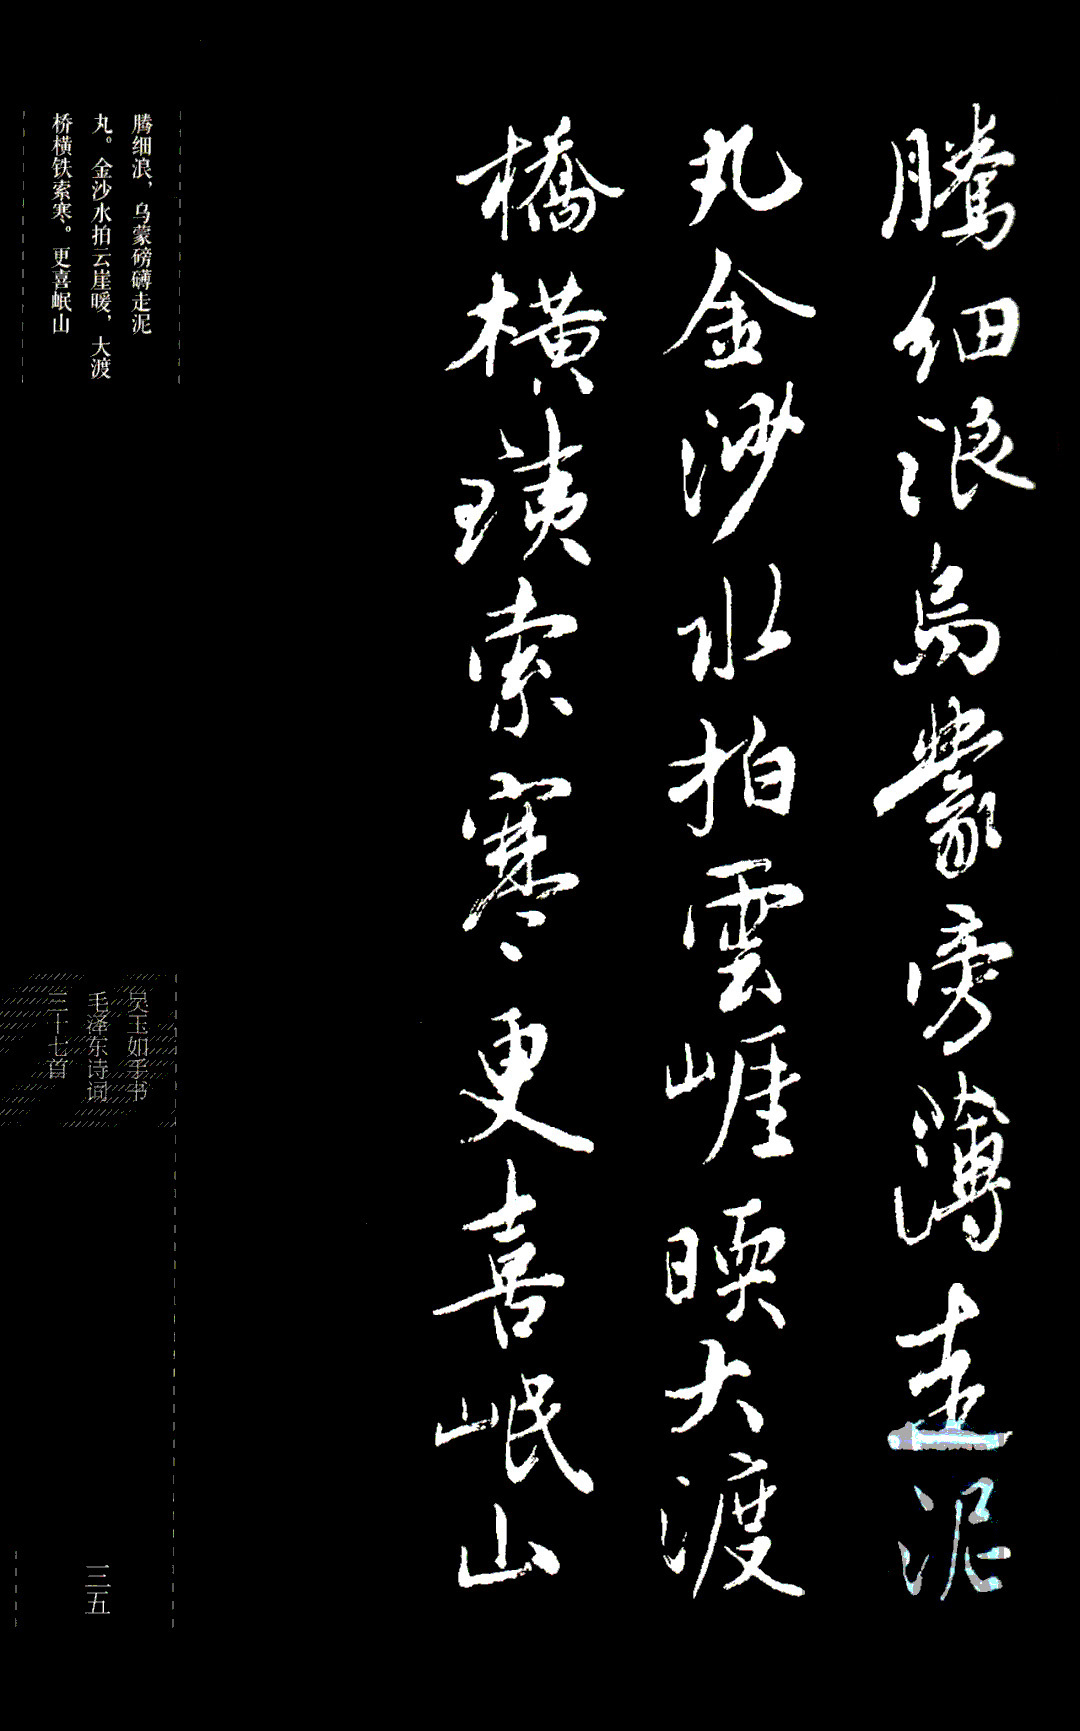 騰細浪烏蒙旁薄走泥
丸金沙水拍雲崕暝大渡
橋橫鐵索寒更喜岷山
腾细浪，乌蒙磅礴走泥
丸。金沙水拍云崖暖，大渡
桥横铁索寒。更喜岷山
吴玉如手书
毛泽东诗词
三十七首
三五